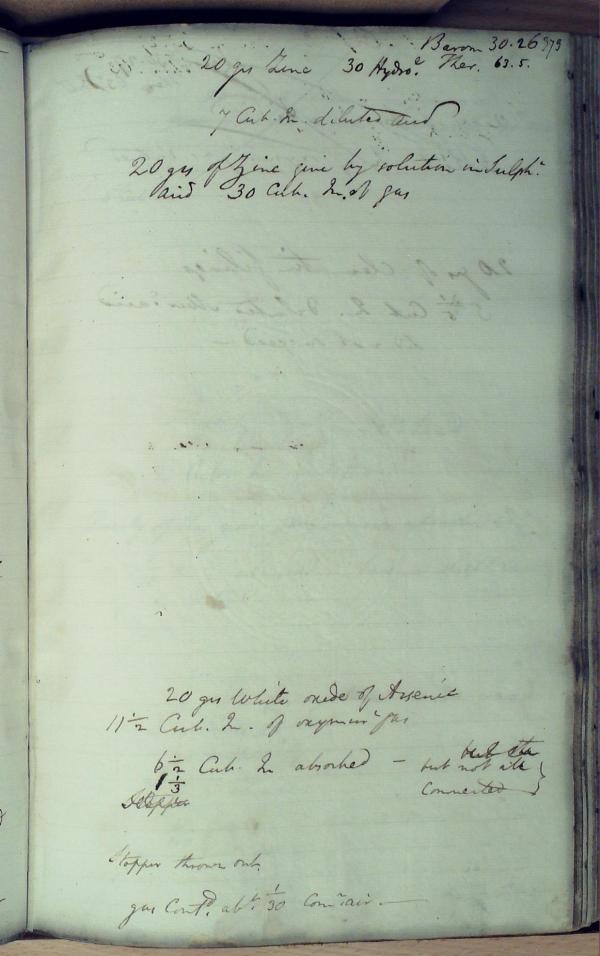 Barom 30.26
20 grs Zinc 30 Hydroe. Ther. 63.5.
7 Cub. In. diluted acid
20 grs of Zinc give by solution in Sulphc.
acid 30 Cub. In. of gas
20 grs White oxide of Arsenic
11 1/2 Cub. In. of oxymurc gas
6 1/2 Cub. In absorbed - but not all
1 1/3
Connected
Stopper
Stopper thrown out.
gas Contd. abt. 1/30 Comn air -